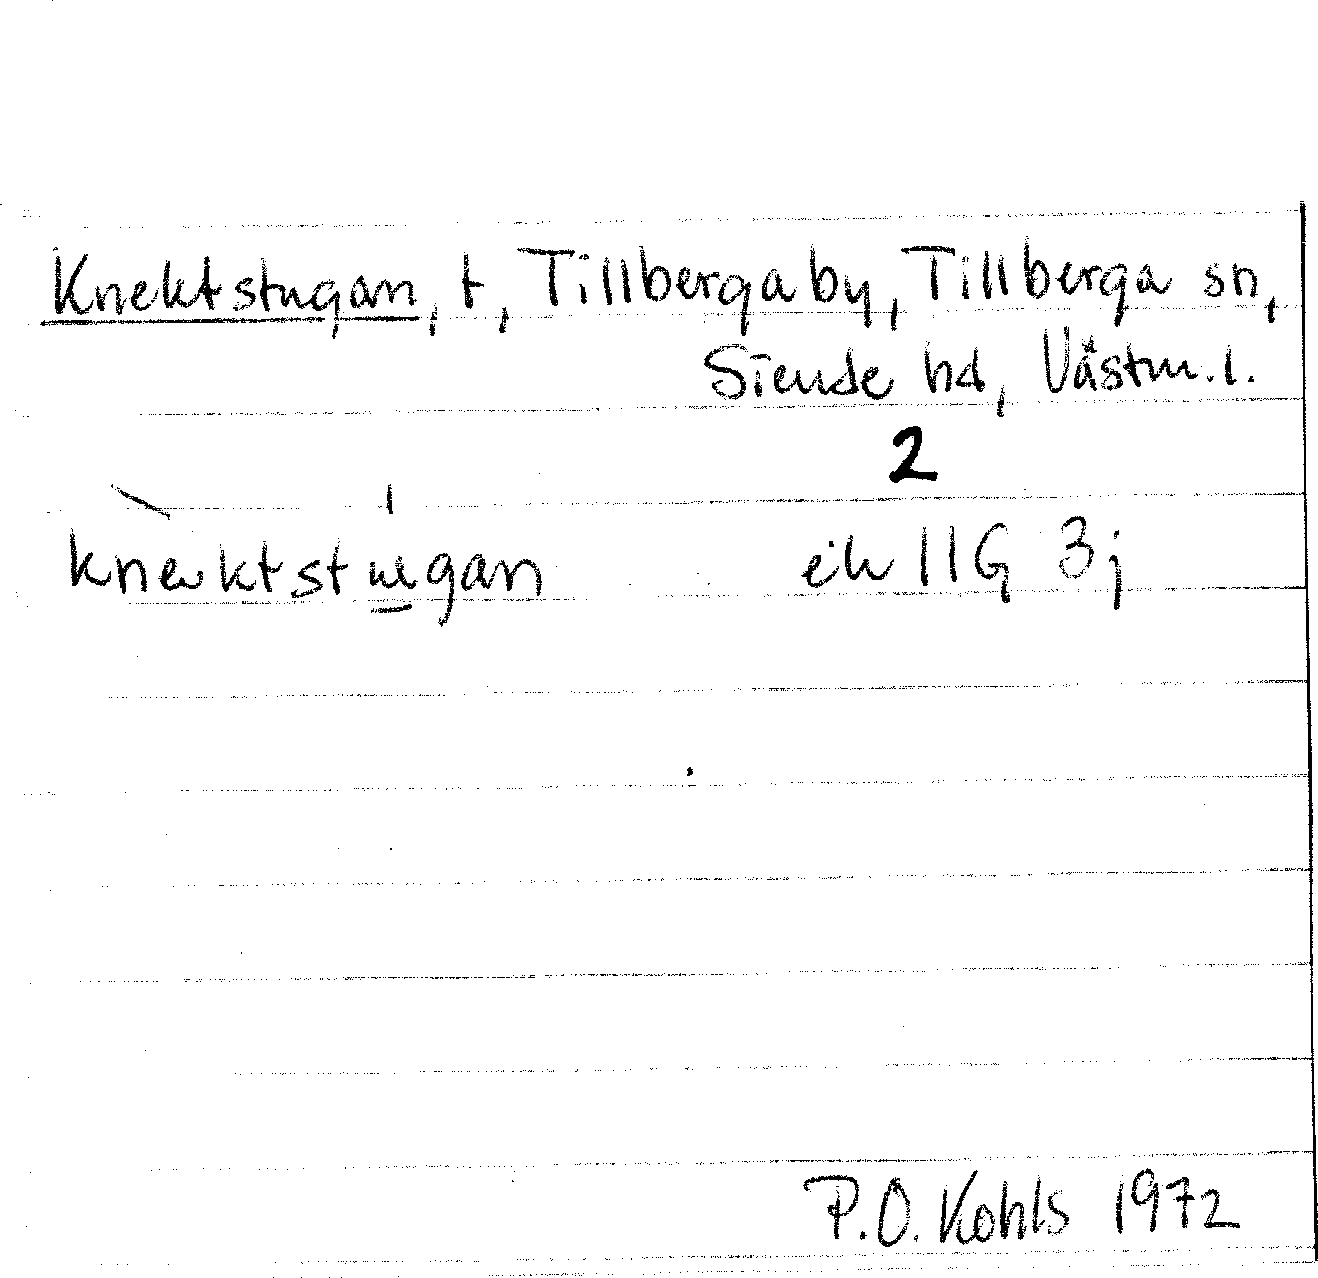 Knektstugan, t, Tillberga by, Tillberga sn,
Siende hd, Västm. l.
2
knektstugan ek 11G 3j
P.O. Kohls 1972